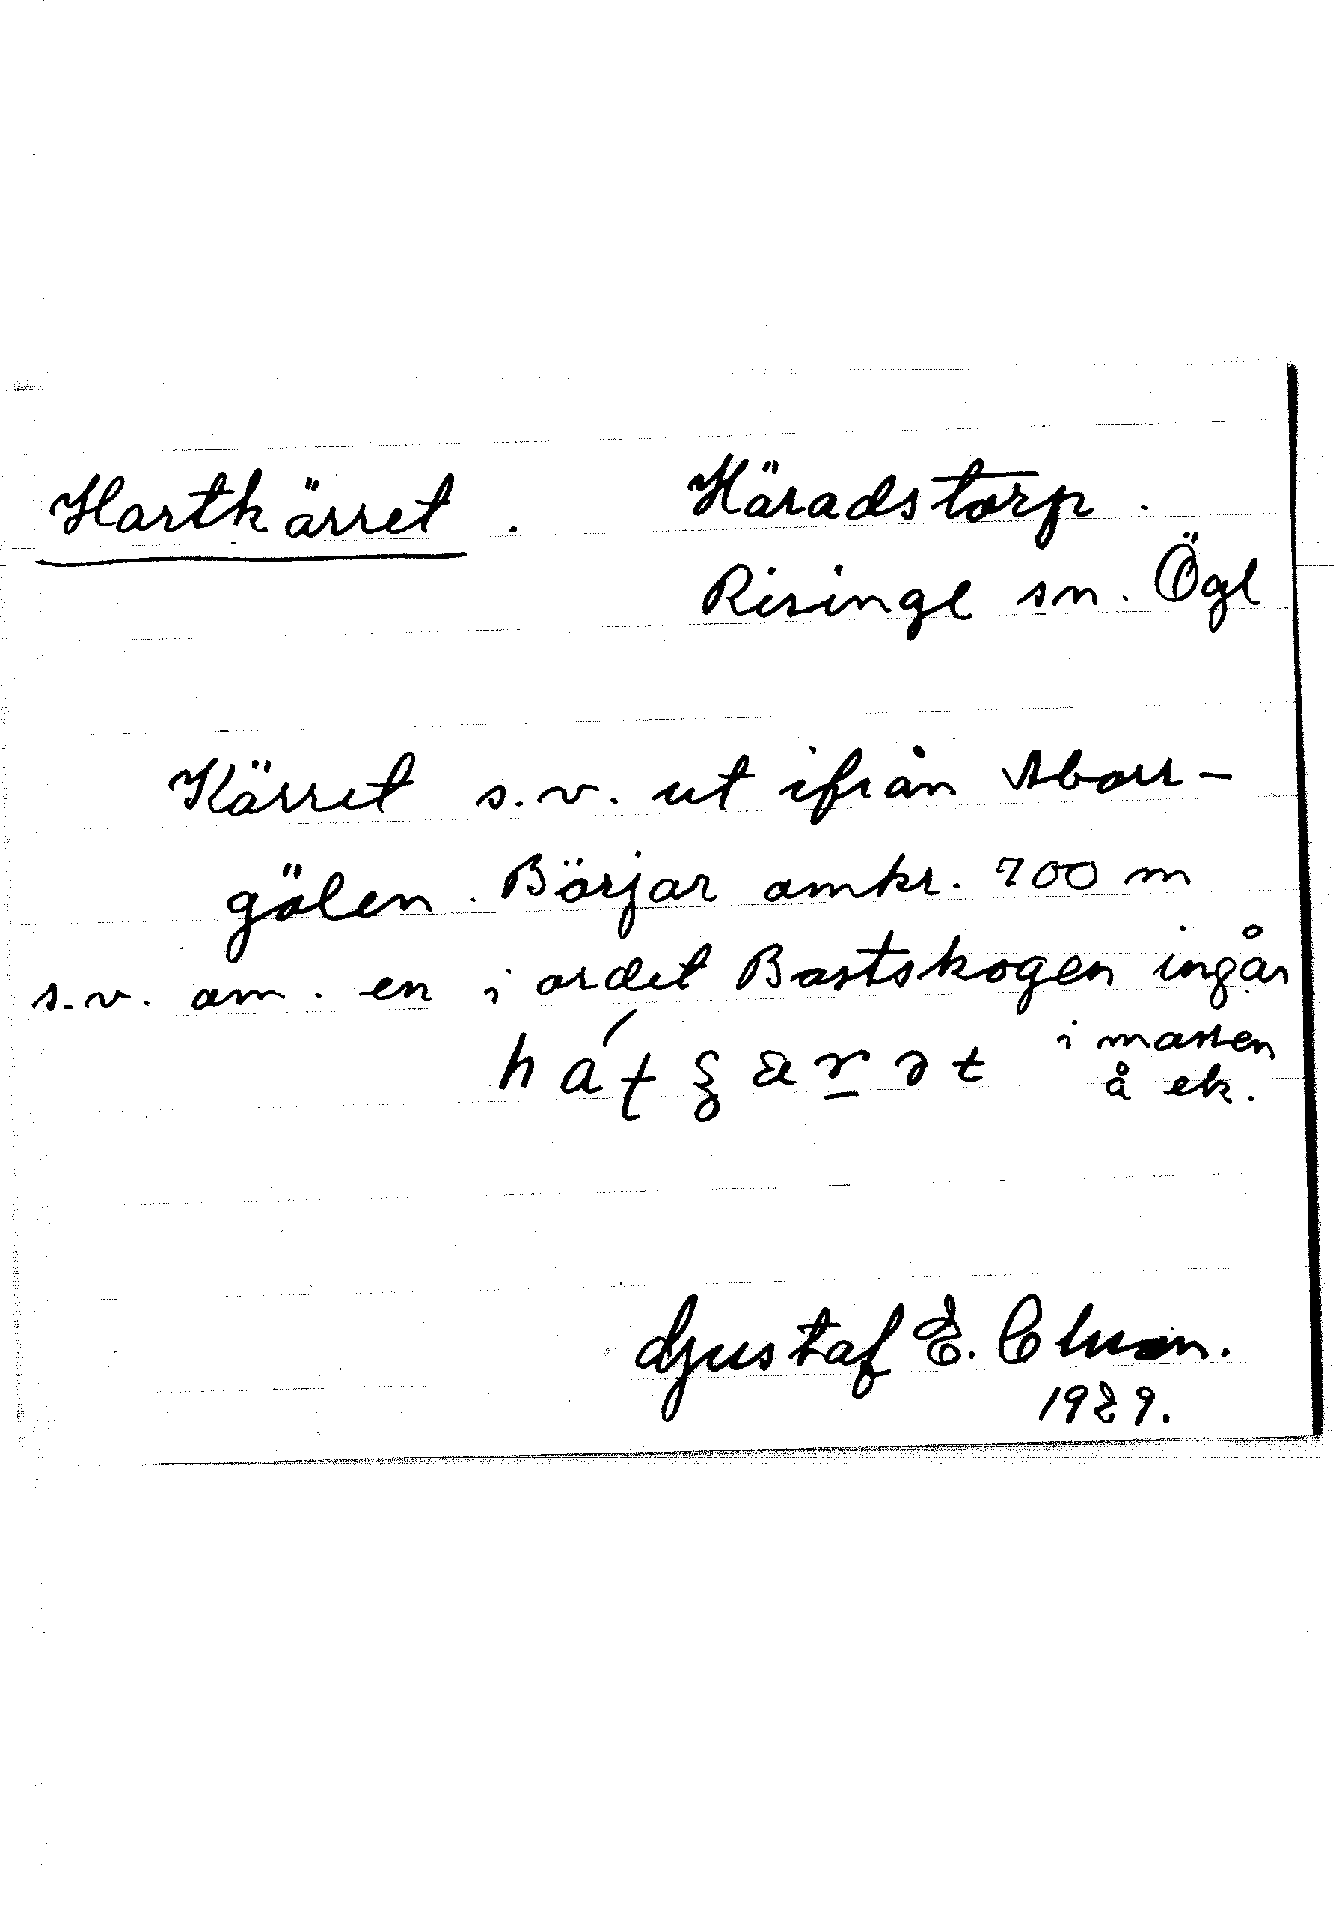 Hartkärret. Häradstorp.
Risinge sn. Ögl
Kärret s.v. ut ifrån Aborr-
gölen. Börjar omkr. 700 m
s.v. om. en i ordet Bastskogen ingår
i massen
å ek.
Gustaf E.
1929.